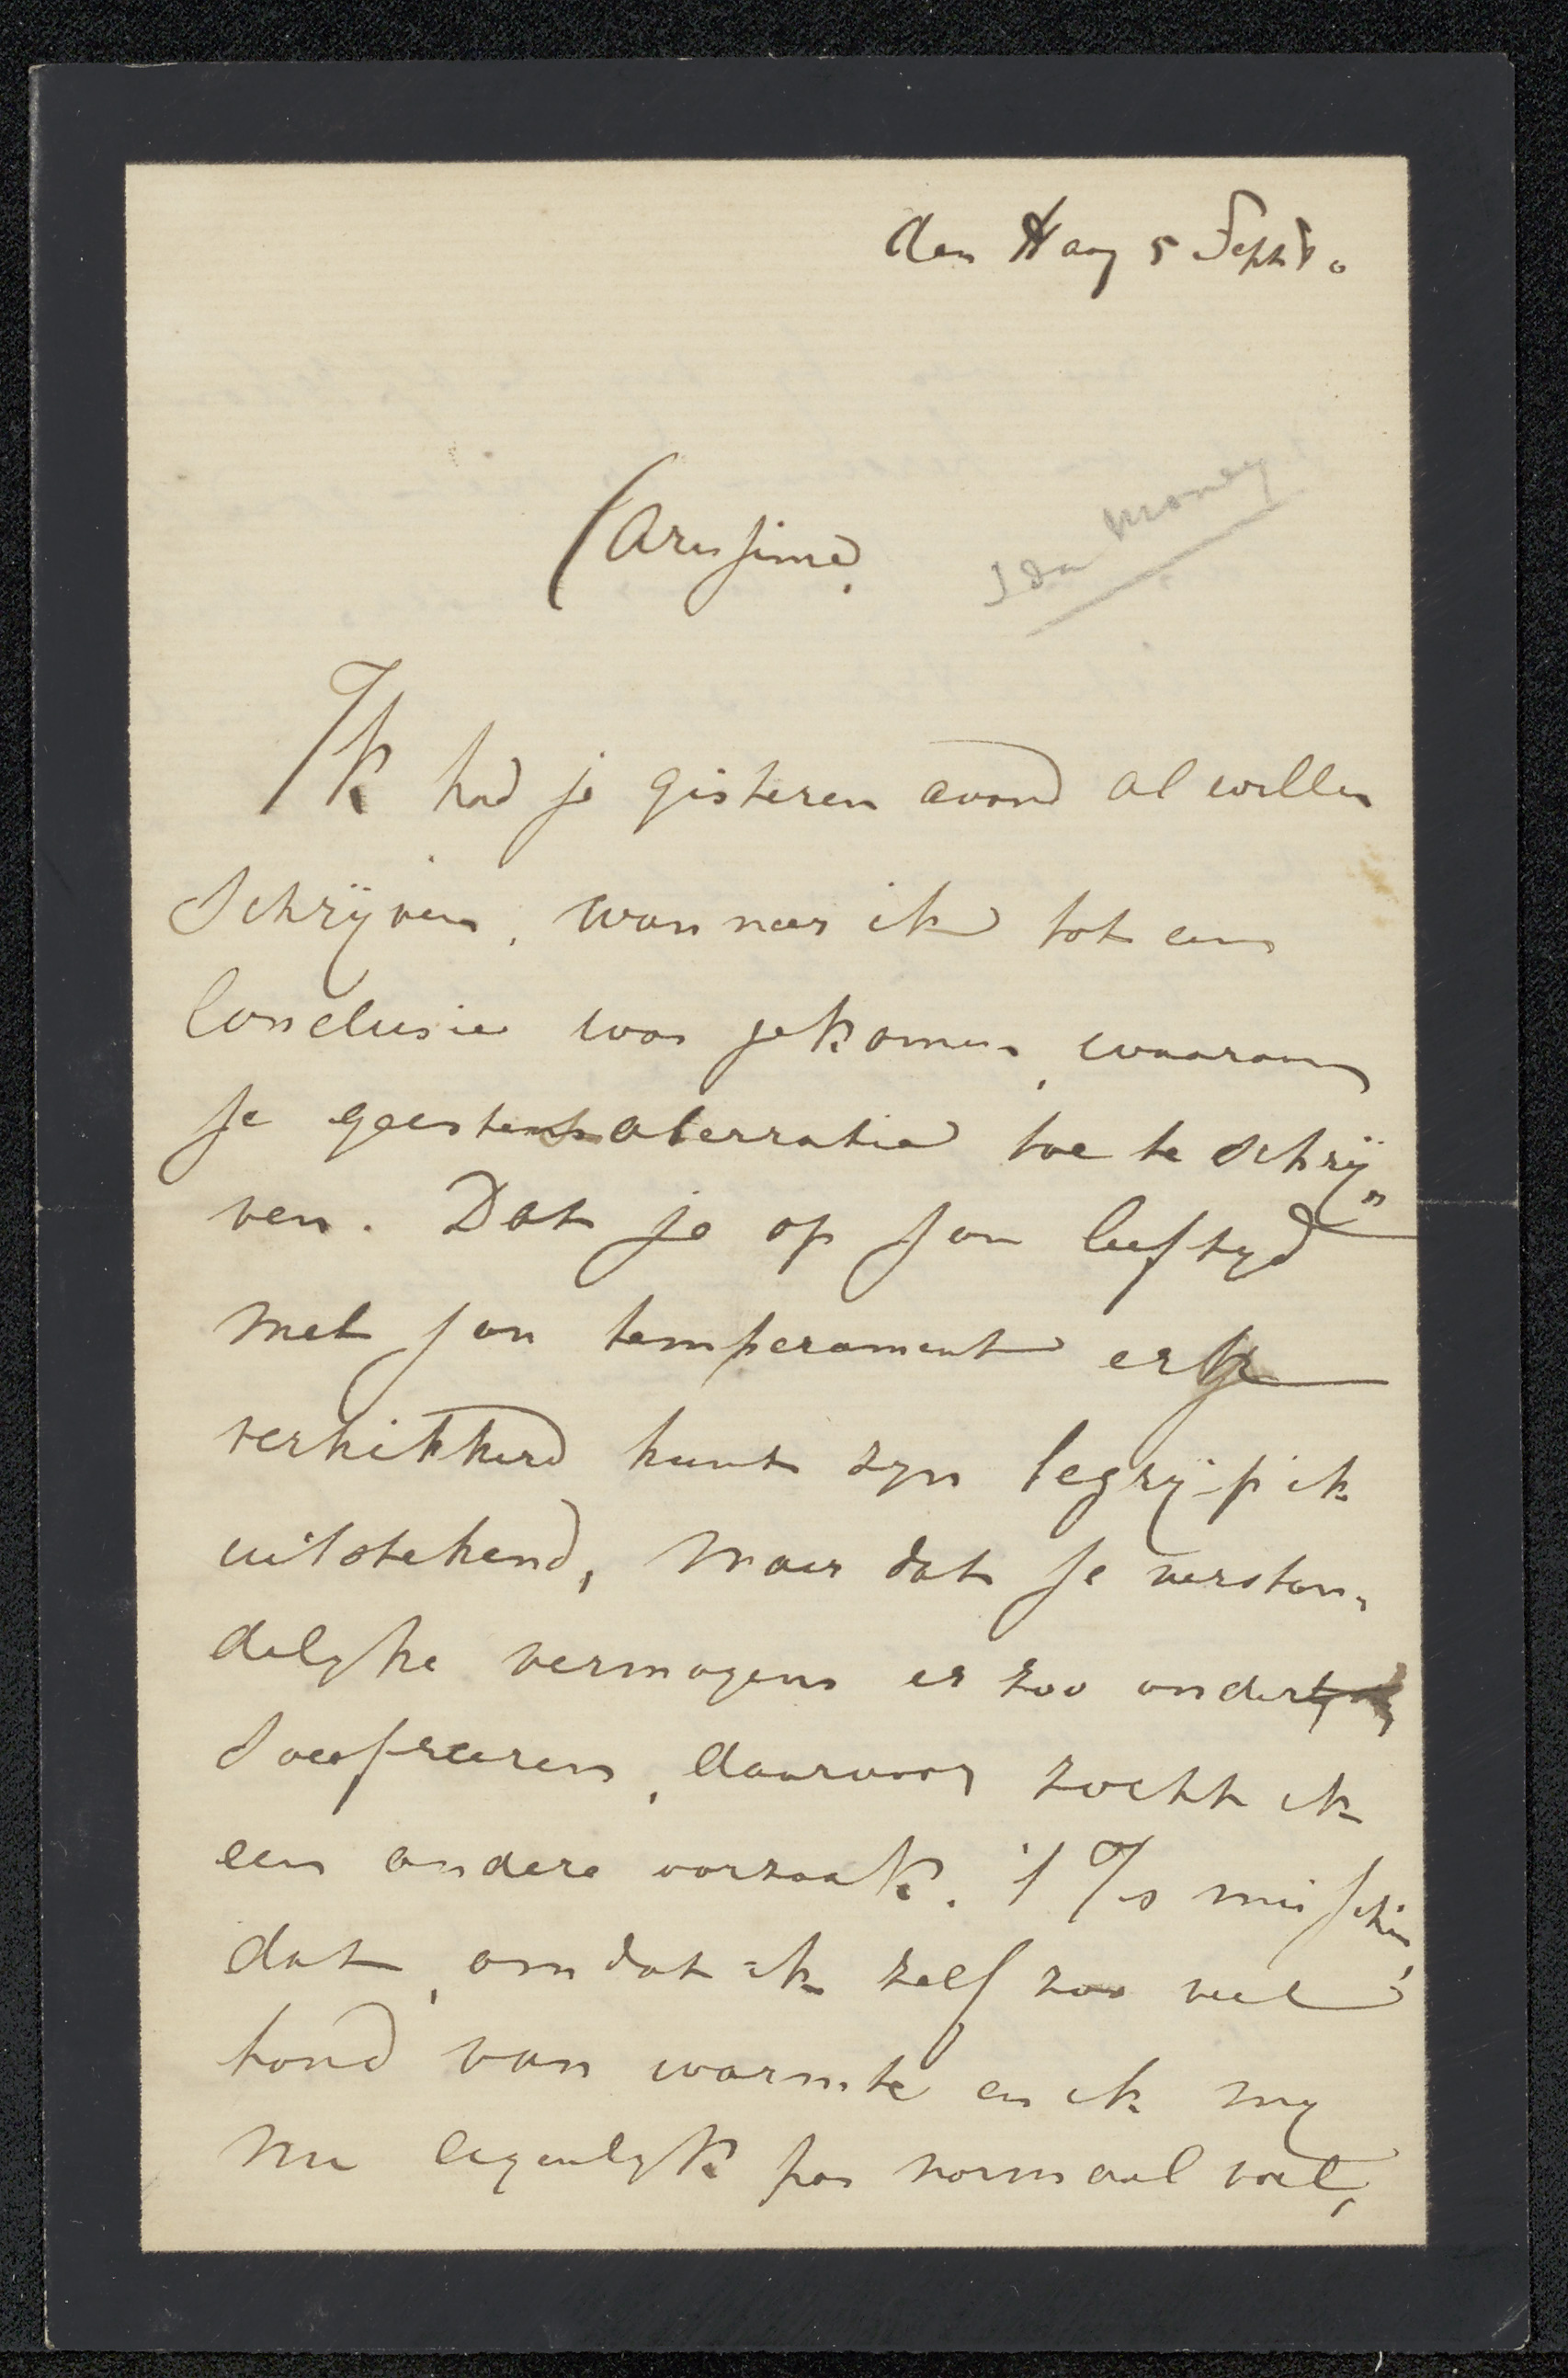 den Haag 5 Sept.
Carissime.
Ida Money
Ik had je gisteren avond al willen
schrijven, wanneer ik tot een
conclusie was gekomen, waaraan
je geestesaberratie toe te schrij„
ven. Dat je op jou leeftyd
met jou temperament erg
verkikkerd kunt zyn begrijp ik
uitstekend, maar dat je verstan„
delyke vermogens er zoo onder
soufreeren, daarvoor zocht ik
een andere oorzaak. 't Is misschien,
dat, omdat ik zelf zoo veel
houd van warmte en ik my
nu eigenlyk pas normaal voel,